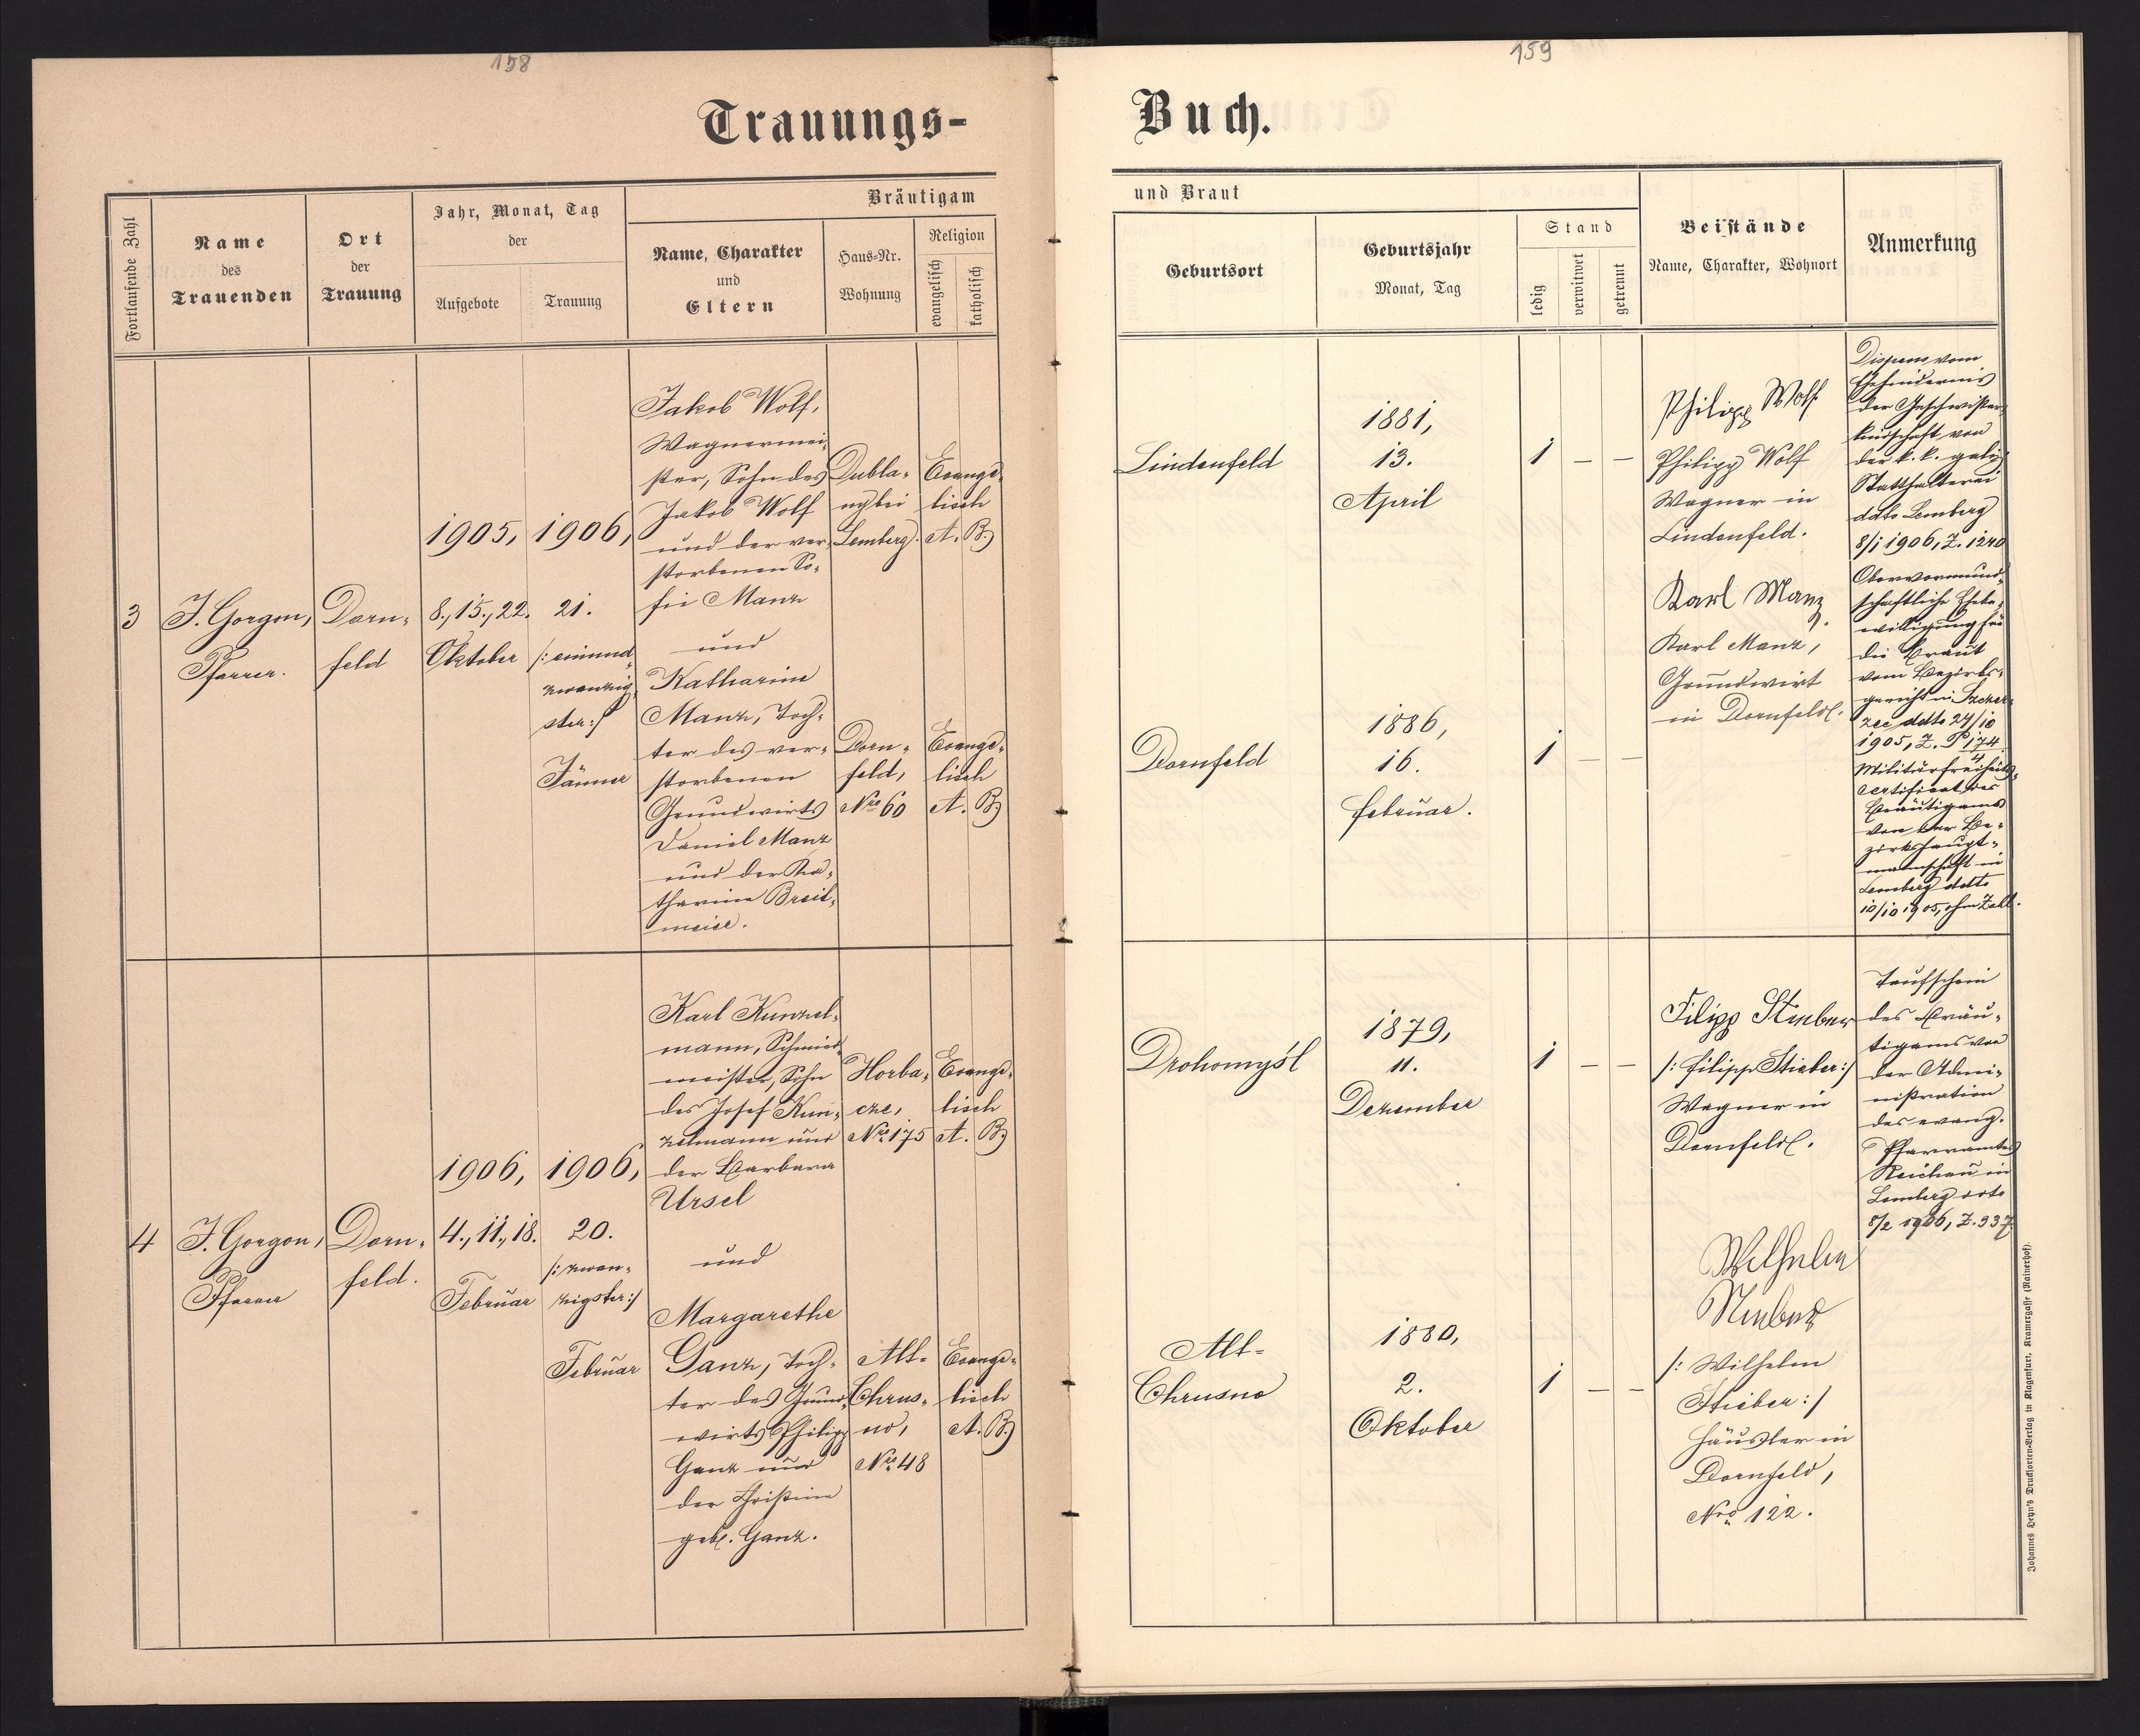 158
Trauungs-
Fortlaufende Zahl
Name
des
Trauenden
Ort
der
Trauung
Jahr, Monat, Tag
der
Aufgebote
Trauung
Bräutigam
Name, Charakter
und
Eltern
Haus-Nr.
Wohnung
Religion
evangelisch
katholisch
3
J. Gorgon,
Pfarrer.
Dorn-
feld
1905,
8., 15., 22.
Oktober
1906,
21.
/: einund
zwanzig-
ster :/
Jänner
Jakob Wolf,
Wagnermei-
ster, Sohn des
Jakob Wolf
und der ver-
storbenen So-
fie Manz
und
Katharine
Manz, Toch-
ter des ver-
storbenen
Grundwirts
Daniel Manz
und der Ka-
tharine Breit-
meier.
Dubla-
ny bei
Lemberg.
Evange-
lisch
A. B.
Dorn-
feld,
Nro 60
Evange-
lisch
A. B.
4
J. Gorgon,
Pfarrer
Dorn-
feld.
1906,
4., 11., 18.
Februar
1906,
20.
/: zwan-
zigster :/
Februar
Karl Kunzel-
mann, Schmied-
meister, Sohn
des Josef Kun-
zelmann und
der Barbara
Ursel
und
Margarethe
Ganz, Toch-
ter des Grund-
wirts Philipp
Ganz und
der Christine
geb. Ganz.
Horba-
cze,
Nro 175
Evange-
lisch
A. B.
Alt-
Chrus-
no,
Nro 48
Evange-
lisch
A. B.
159
Buch.
und Braut
Geburtsort
Geburtsjahr
Monat, Tag
Stand
ledig
verwitwet
getrennt
Beistände
Name, Charakter, Wohnort
Anmerkung
Lindenfeld
1881,
13.
April
1 – –
Philipp Wolf
Philipp Wolf
Wagner in
Lindenfeld.
Dornfeld
1886,
16.
Februar.
1 – –
Karl Manz.
Karl Manz,
Grundwirt
in Dornfeld.
Dispens vom
Ehehindernis
der Geschwister-
kindschaft von
der k. k. galiz.
Statthalterei
ddto Lemberg
8/1 1906, Z. 1240
Obervormund-
schaftliche Ehebe-
willigung für
die Braut
vom Bezirks-
gericht in Szczer-
zec ddto 24/10
1905, Z. P 174/4
Militärfreiheits-
certifikat des
Bräutigams
von der Be-
zirkshaupt-
mannschaft in
Lemberg ddto
10/10 1905, ohne Zahl.
Drohomyśl
1879,
11.
Dezember
1 – –
Filipp Stieber
/: Filipp Stieber :/
Wagner in
Dornfeld.
Taufschein
des Bräu-
tigams von
der Admi-
nistration
des evang.
Pfarramtes
Reichau in
Lemberg ddto
8/2 1906, Z. 937.
Alt-
Chrusno
1880,
2.
Oktober
1 – –
Wilhelm
Stieber
/: Wilhelm
Stieber :/
Häusler in
Dornfeld,
Nro 122.
Johannes Heyn's Drucksorten-Verlag in Klagenfurt, Kramergasse (Rainerhof)